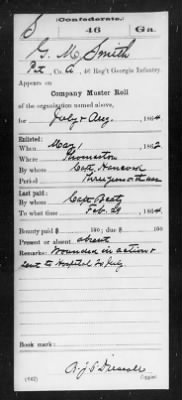 S
Confederate.
46
Ga.
G. M. Smith
Pvt, Co. A, 46 Reg't Georgia Infantry.
Appears on
Company Muster Roll
of the organization named above,
for July & Aug, 1864
Enlisted:
When May 1 1862
Where Thomaston
By whom Capt. Hancock
Period Three years or the war
Last paid:
By whom Capt Beaty
To what time Feb. 1864
Bounty paid $ 100; due $ 100
Present or absent absent
Remarks: Wounded in action &
sent to Hospital 20 July
Book mark:
(642)
Copyist.